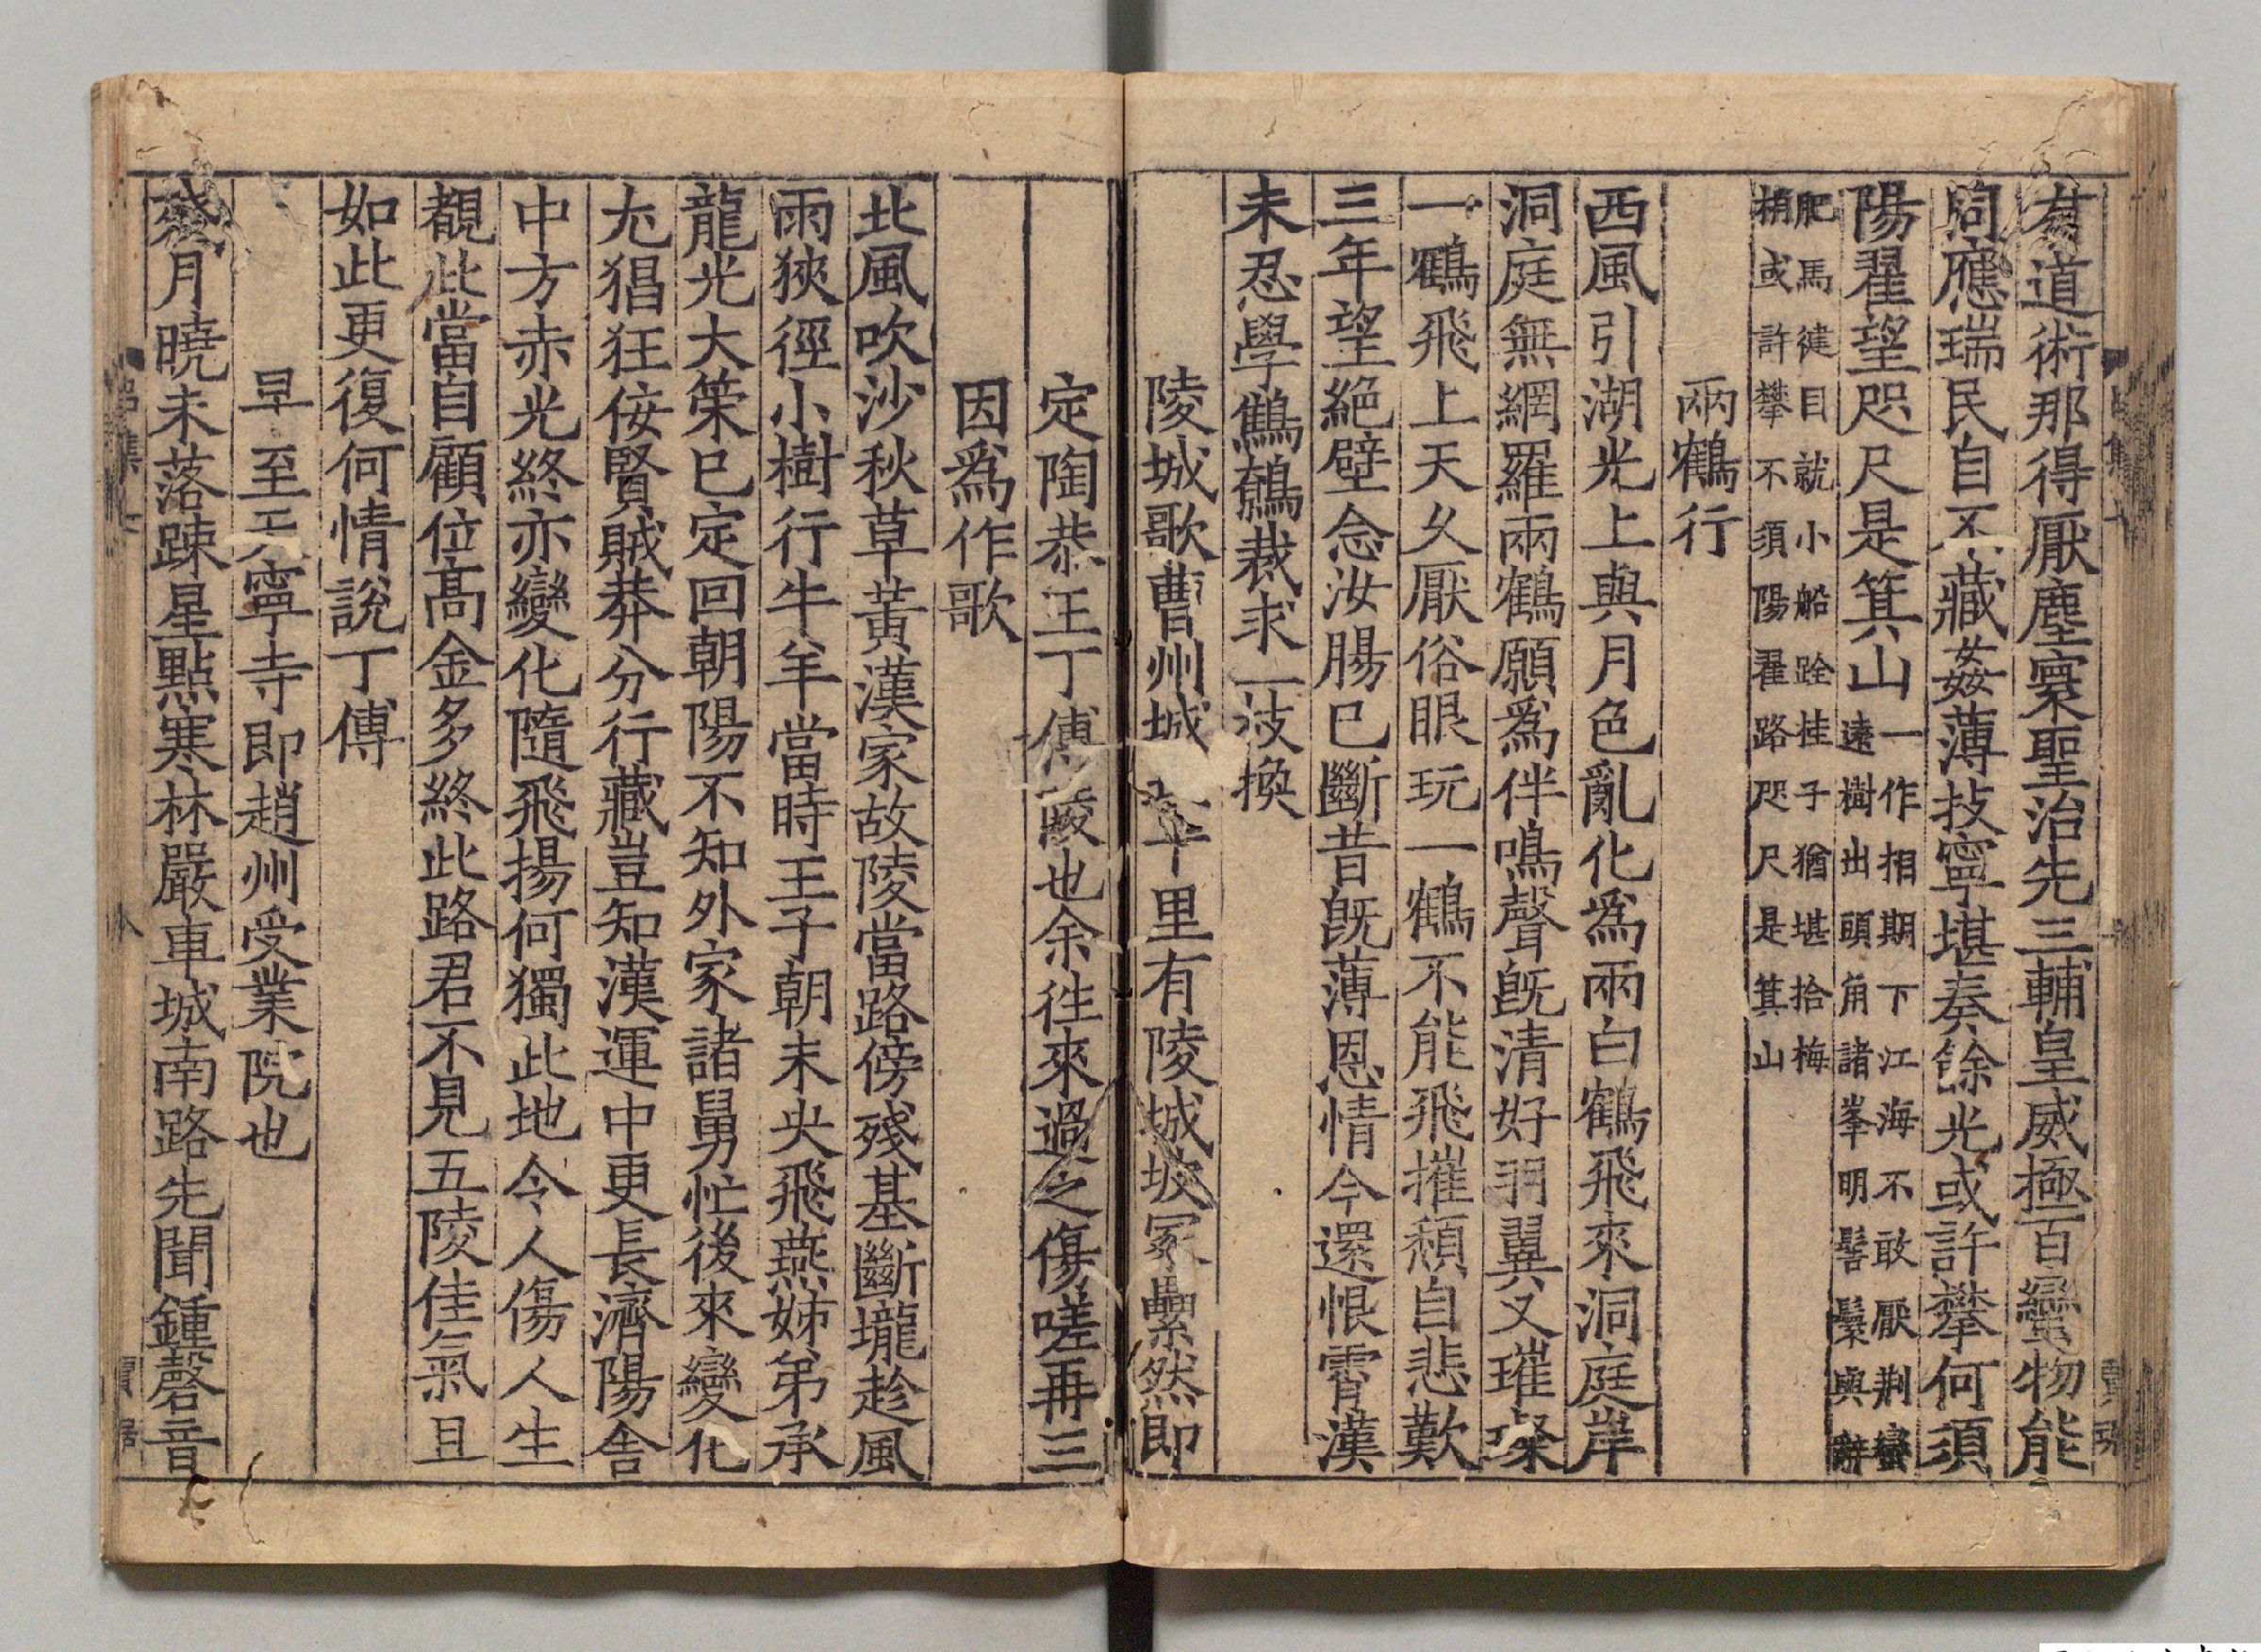 有道術那得厭塵寰聖治先三輔皇威極百蠻物能
同應瑞民自不藏姦薄技寧堪奏餘光或許攀何須
陽翟望咫尺是箕山一作相期下江海不敢厭荆蠻
遠樹出頭角諸峯明髻鬟與辭
肥馬徤目就小船跧桂子猶堪拾梅
梢或許攀不須陽翟路咫尺是箕山
兩鶴行
西風引湖光上與月色亂化爲兩白鶴飛來洞庭岸
洞庭無網羅兩鶴願爲伴鳴聲旣清好羽翼又璀璨
一鶴飛上天久厭俗眼玩一鶴不能飛摧頹自悲歎
三年望絕壁念汝腸已斷昔旣薄恩情今還恨霄漢
未忍學鷦鷯裁求一枝換
陵城歌曹州城 十里有陵城坡冢纍然即
定陶恭王丁傅陵也余徃來過之傷嗟再三
因爲作歌
北風吹沙秋草黃漢家故陵當路傍殘基斷壠趁風
雨狹徑小樹行牛羊當時王子朝未央飛燕姊弟承
龍光大策已定回朝陽不知外家諸舅忙後來變化
尢猖狂侫賢賊莽分行藏豈知漢運中更長濟陽舎
中方赤光終亦變化隨飛揚何獨此地令人傷人生
覩此當自顧位高金多終此路君不見五陵佳氣且
如此更復何情說丁傅
早至天寧寺即趙州受業院也
殘月曉未落踈星點寒林嚴車城南路先聞鍾磬音